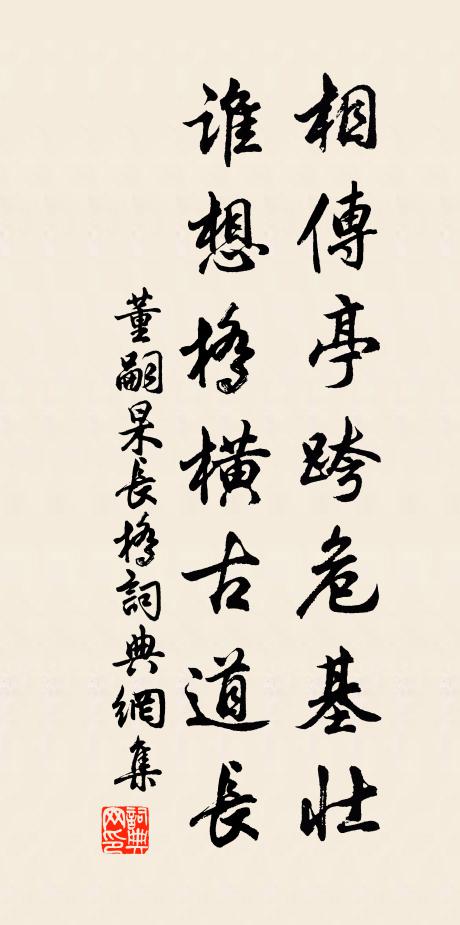 相傳亭跨危基壯
誰想橋橫古道長
董嗣杲長橋詞典網集
詞典網印